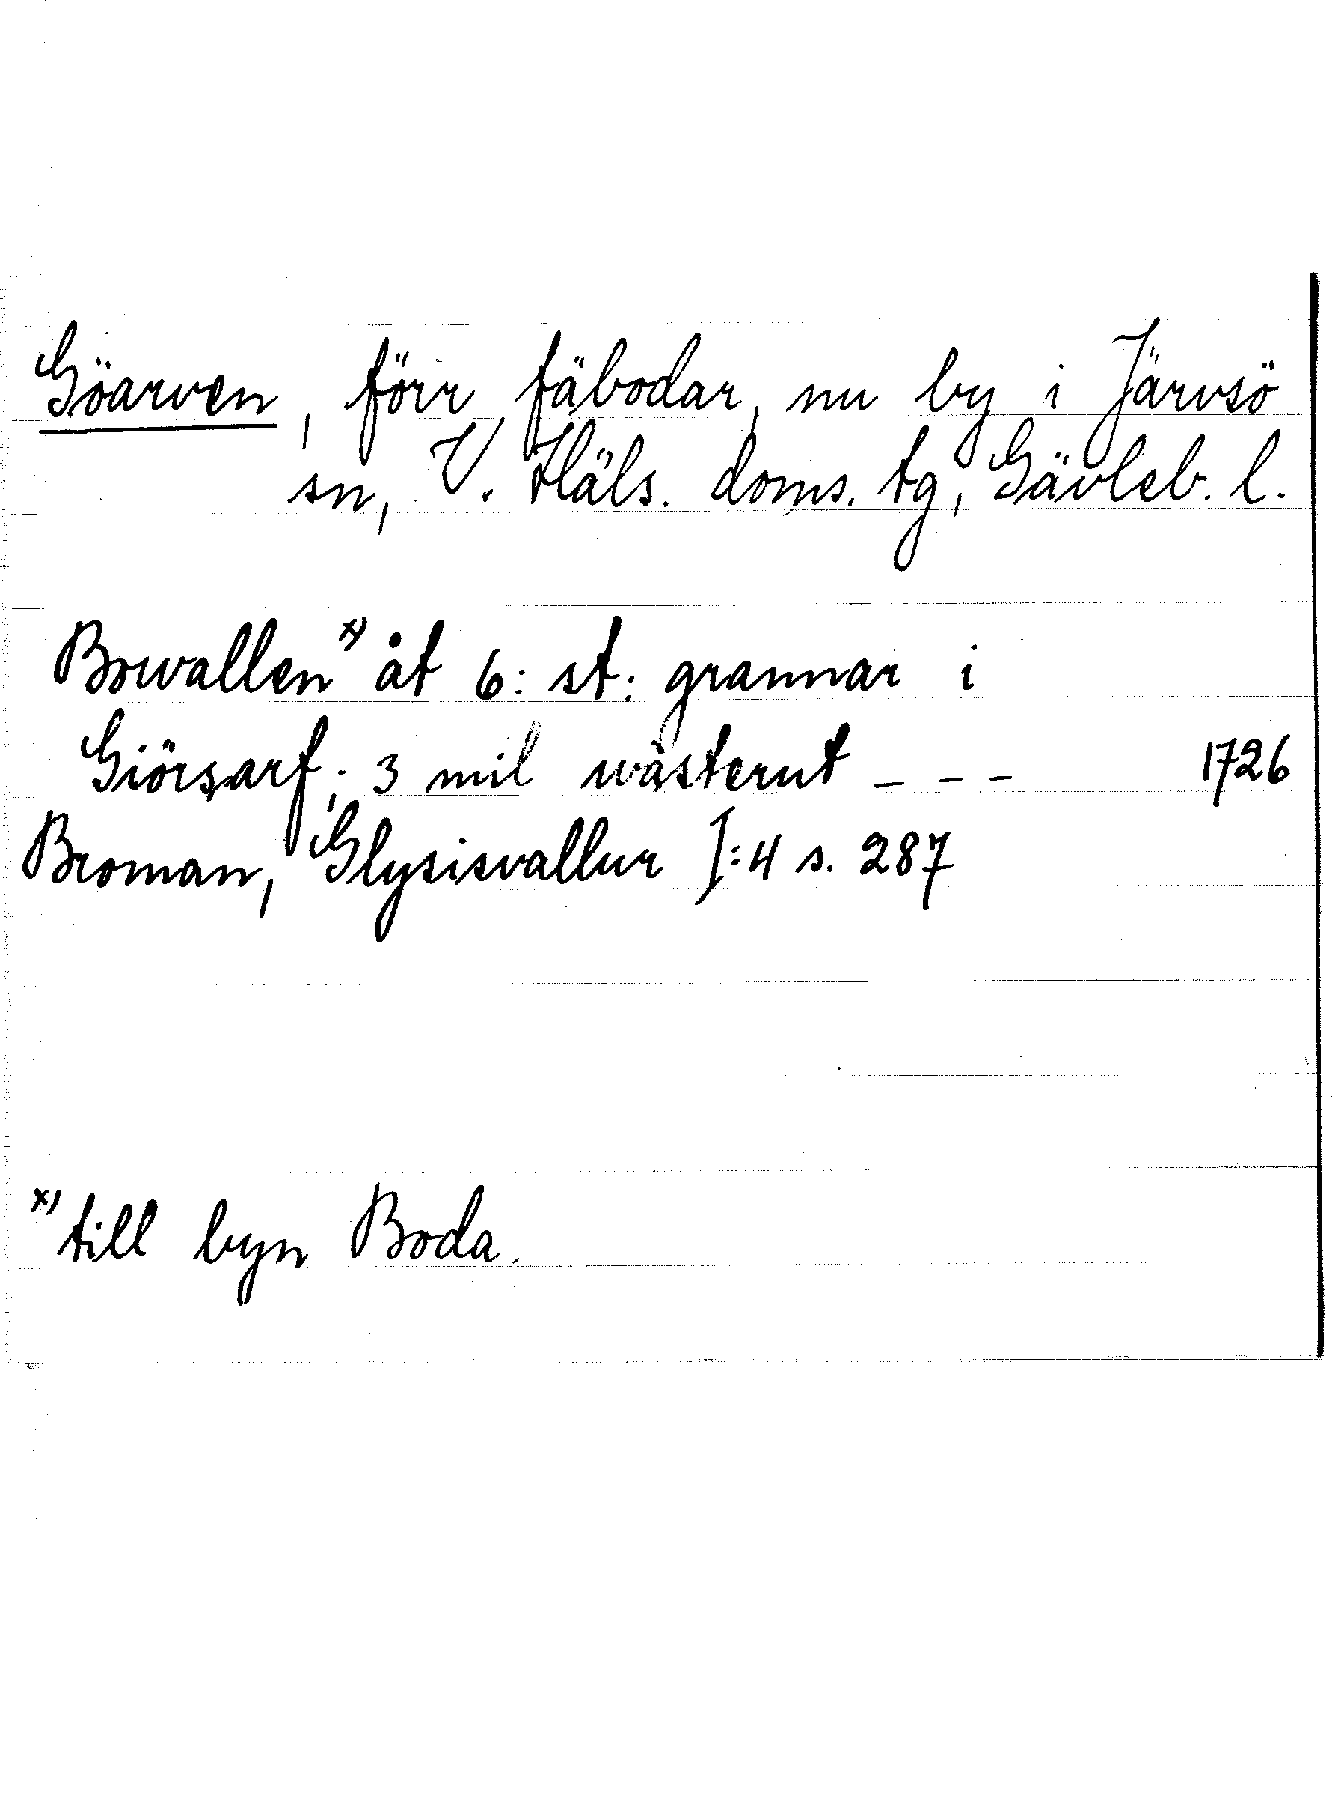 Göarven, förr fäbodar, nu by i Järvsö
sn, V. Häls. doms. tg, Gävleb. l.
Bowallen x) åt 6: st: grannar i
Giörsarf; 3 mil wästerut - - - 1726
Broman, Glysisvallur I:4 s. 287
x) till byn Boda.